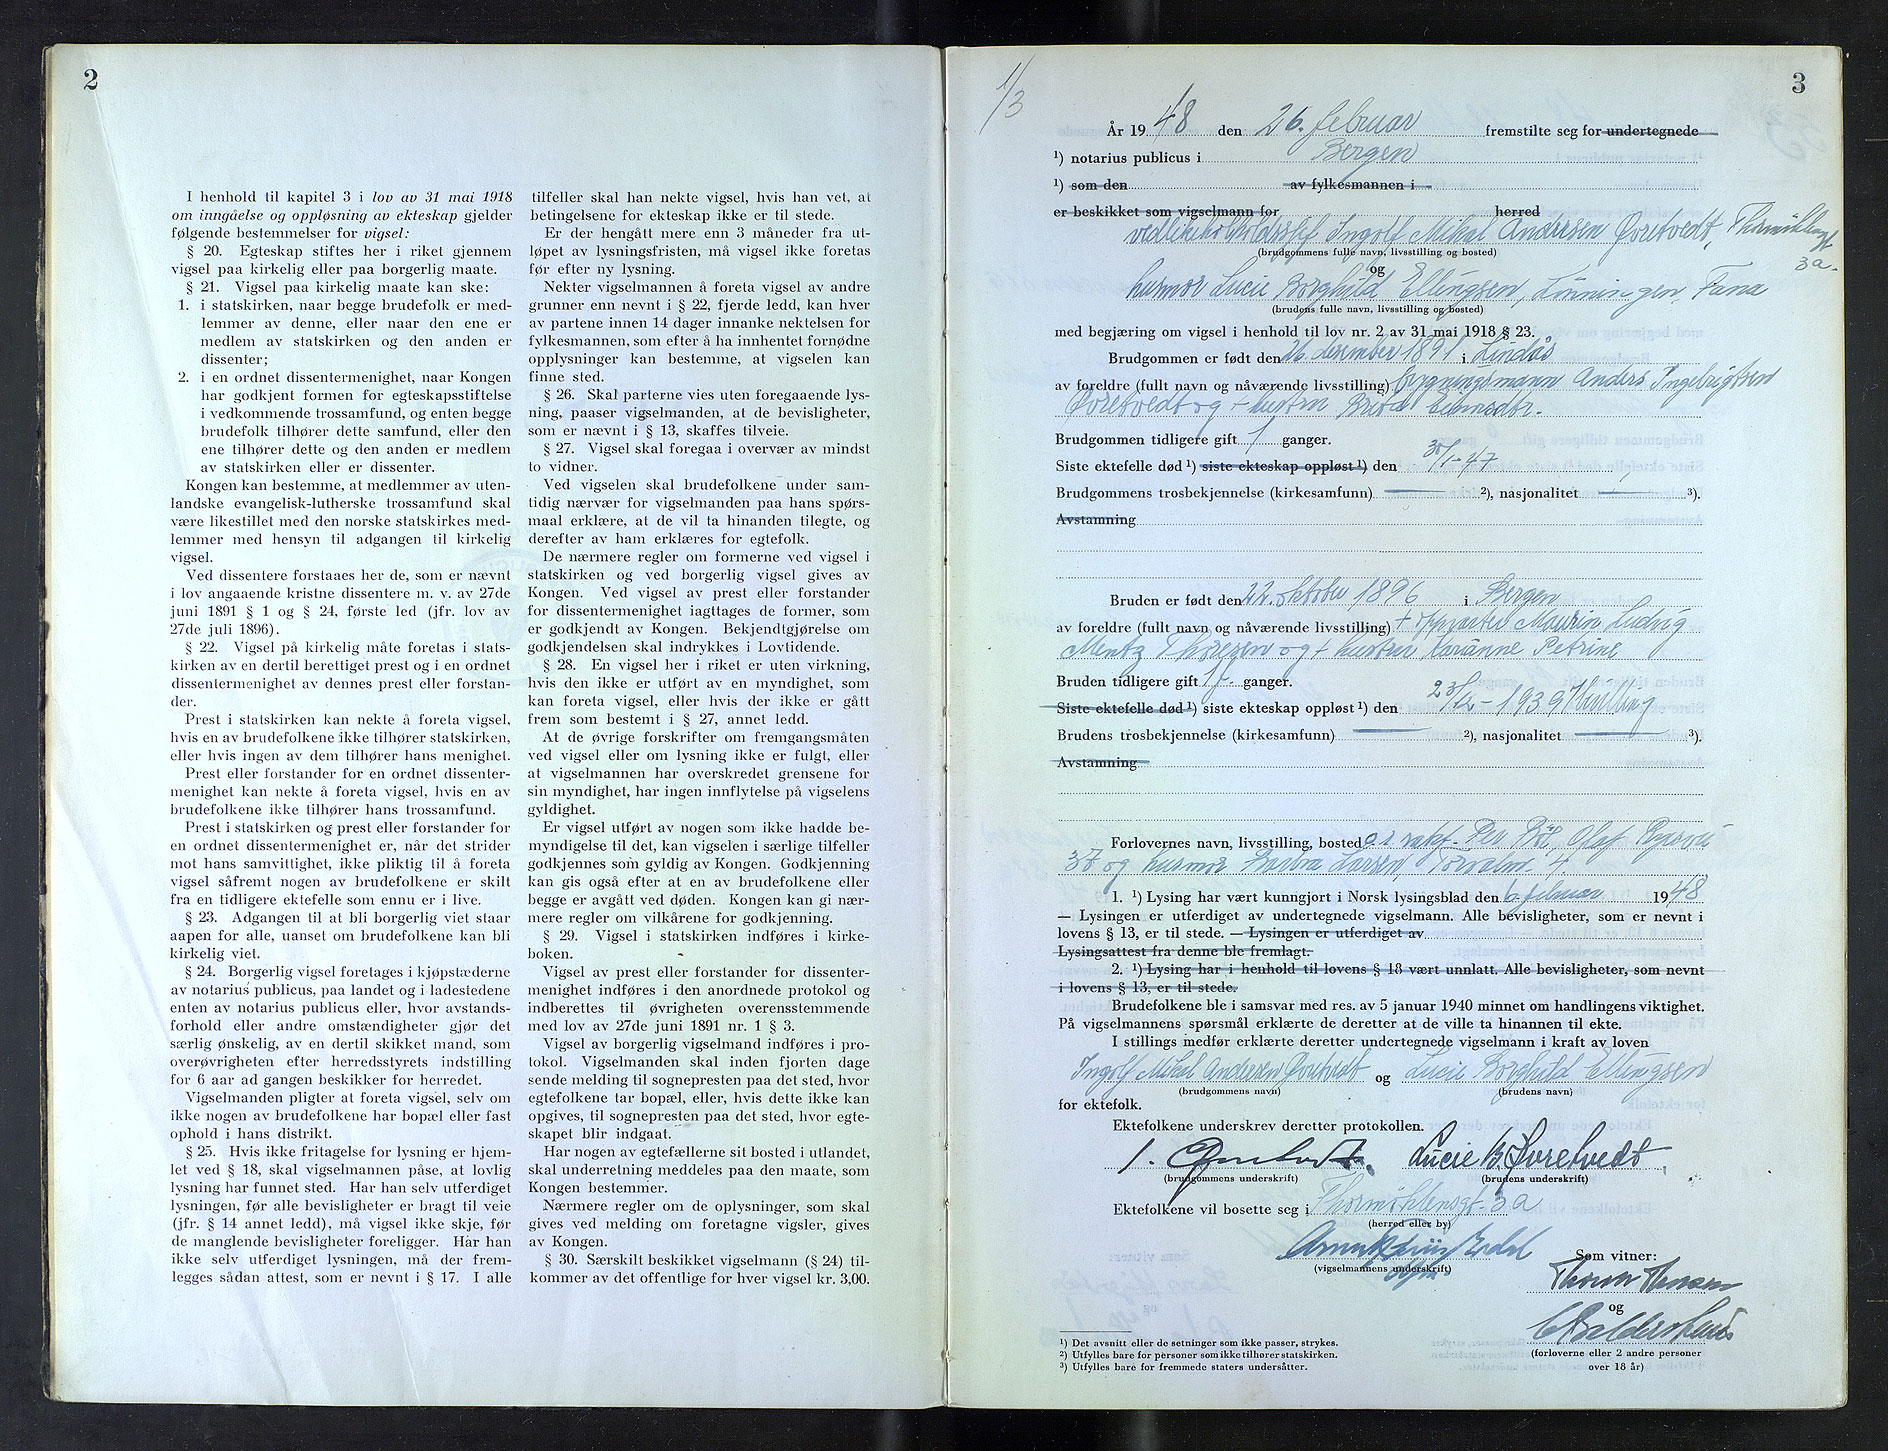 2
I henhold til kapitel 3 i lov av 31 mai 1918
om inngåelse og oppløsning av ekteskap gjelder
følgende bestemmelser for vigsel:
§ 20. Egteskap stiftes her i riket gjennem
vigsel paa kirkelig eller paa borgerlig maate.
§ 21. Vigsel paa kirkelig maate kan ske:
1. i statskirken, naar begge brudefolk er med-
lemmer av denne, eller naar den ene er
medlem av statskirken og den anden er
dissenter;
2. i en ordnet dissentermenighet, naar Kongen
har godkjent formen for egteskapsstiftelse
i vedkommende trossamfund, og enten begge
brudefolk tilhører dette samfund, eller den
ene tilhører dette og den anden er medlem
av statskirken eller er dissenter.
Kongen kan bestemme, at medlemmer av uten-
landske evangelisk-lutherske trossamfund skal
være likestillet med den norske statskirkes med-
lemmer med hensyn til adgangen til kirkelig
vigsel.
Ved dissentere forstaaes her de, som er nævnt
i lov angaaende kristne dissentere m. v. av 27de
juni 1891 § 1 og § 24, første led (jfr. lov av
27de juli 1896).
§ 22. Vigsel på kirkelig måte foretas i stats-
kirken av en dertil berettiget prest og i en ordnet
dissentermenighet av dennes prest eller forstan-
der.
Prest i statskirken kan nekte å foreta vigsel,
hvis en av brudefolkene ikke tilhører statskirken,
eller hvis ingen av dem tilhører hans menighet.
Prest eller forstander for en ordnet dissenter-
menighet kan nekte å foreta vigsel, hvis en av
brudefolkene ikke tilhører hans trossamfund.
Prest i statskirken og prest eller forstander for
en ordnet dissentermenighet er, når det strider
mot hans samvittighet, ikke pliktig til å foreta
vigsel såfremt nogen av brudefolkene er skilt
fra en tidligere ektefelle som ennu er i live.
§ 23. Adgangen til at bli borgerlig viet staar
aapen for alle, uanset om brudefolkene kan bli
kirkelig viet.
§ 24. Borgerlig vigsel foretages i kjøpstæderne
av notarius publicus, paa landet og i ladestedene
enten av notarius publicus eller, hvor avstands-
forhold eller andre omstændigheter gjør det
særlig ønskelig, av en dertil skikket mand, som
overøvrigheten efter herredsstyrets indstilling
for 6 aar ad gangen beskikker for herredet.
Vigselmanden pligter at foreta vigsel, selv om
ikke nogen av brudefolkene har bopæl eller fast
ophold i hans distrikt.
§ 25. Hvis ikke fritagelse for lysning er hjem-
let ved § 18, skal vigselmannen påse, at lovlig
lysning har funnet sted. Har han selv utferdiget
lysningen, før alle bevisligheter er bragt til veie
(jfr. § 14 annet ledd), må vigsel ikke skje, før
de manglende bevisligheter foreligger. Hår han
ikke selv utferdiget lysningen, må der frem-
legges sådan attest, som er nevnt i § 17. I alle
tilfeller skal han nekte vigsel, hvis han vet, at
betingelsene for ekteskap ikke er til stede.
Er der hengått mere enn 3 måneder fra ut-
løpet av lysningsfristen, må vigsel ikke foretas
før efter ny lysning.
Nekter vigselmannen å foreta vigsel av andre
grunner enn nevnt i § 22, fjerde ledd, kan hver
av partene innen 14 dager innanke nektelsen for
fylkesmannen, som efter å ha innhentet fornødne
opplysninger kan bestemme, at vigselen kan
finne sted.
§ 26. Skal parterne vies uten foregaaende lys-
ning, paaser vigselmanden, at de bevisligheter,
som er nævnt i § 13, skaffes tilveie.
§ 27. Vigsel skal foregaa i overvær av mindst
to vidner.
Ved vigselen skal brudefolkene under sam-
tidig nærvær for vigselmanden paa hans spørs-
maal erklære, at de vil ta hinanden tilegte, og
derefter av ham erklæres for egtefolk.
De nærmere regler om formerne ved vigsel i
statskirken og ved borgerlig vigsel gives av
Kongen. Ved vigsel av prest eller forstander
for dissentermenighet iagttages de former, som
er godkjendt av Kongen. Bekjendtgjørelse om
godkjendelsen skal indrykkes i Lovtidende.
§ 28. En vigsel her i riket er uten virkning,
hvis den ikke er utført av en myndighet, som
kan foreta vigsel, eller hvis der ikke er gått
frem som bestemt i § 27, annet ledd.
At de øvrige forskrifter om fremgangsmåten
ved vigsel eller om lysning ikke er fulgt, eller
at vigselmannen har overskredet grensene for
sin myndighet, har ingen innflytelse på vigselens
gyldighet.
Er vigsel utført av nogen som ikke hadde be-
myndigelse til det, kan vigselen i særlige tilfeller
godkjennes som gyldig av Kongen. Godkjenning
kan gis også efter at en av brudefolkene eller
begge er avgått ved døden. Kongen kan gi nær-
mere regler om vilkårene for godkjenning.
§ 29. Vigsel i statskirken indføres i kirke-
boken.
Vigsel av prest eller forstander for dissenter-
menighet indføres i den anordnede protokol og
indberettes til øvrigheten overensstemmende
med lov av 27de juni 1891 nr. 1 § 3.
Vigsel av borgerlig vigselmand indføres i pro-
tokol. Vigselmanden skal inden fjorten dage
sende melding til sognepresten paa det sted, hvor
egtefolkene tar bopæl, eller, hvis dette ikke kan
opgives, til sognepresten paa det sted, hvor egte-
skapet blir indgaat.
Har nogen av egtefællerne sit bosted i utlandet,
skal underretning meddeles paa den maate, som
Kongen bestemmer.
Nærmere regler om de oplysninger, som skal
gives ved melding om foretagne vigsler, gives
av Kongen.
§ 30. Særskilt beskikket vigselmann (§ 24) til-
kommer av det offentlige for hver vigsel kr. 3,00.
1/3
3
År 1948 den 26. februar fremstilte seg for undertegnede
¹) notarius publicus i Bergen
¹) som den av fylkesmannen i
er beskikket som vigselmann for herred
vedlikeholdssjef Ingolf Mikal Andersen Øvretvedt, Thormöhlensgt
3a.
(brudgommens fulle navn, livsstilling og bosted)
og
husmor Lucie Borghild Ellingsen, Lönningen, Fana
(brudens fulle navn, livsstilling og bosted)
med begjæring om vigsel i henhold til lov nr. 2 av 31 mai 1918 § 23.
Brudgommen er født den 26. desember 1891 i Lindås
av foreldre (fullt navn og nåværende livsstilling) bygningsmann Anders Ingebrigtsen
Øvretvedt og + hustru Brita
Brudgommen tidligere gift 1 ganger.
Siste ektefelle død ¹) siste ekteskap oppløst ¹) den 30/1-47
Brudgommens trosbekjennelse (kirkesamfunn) — ²), nasjonalitet — ³).
Avstamning
Bruden er født den 22. oktober 1896 i Bergen
av foreldre (fullt navn og nåværende livsstilling) + Maurin Ludvig
Mentz Thoresen og + hustru Karanne Petrine
Bruden tidligere gift 1 ganger.
Siste ektefelle død ¹) siste ekteskap oppløst ¹) den 23/12-1939
Brudens trosbekjennelse (kirkesamfunn) — ²), nasjonalitet — ³).
Avstamning
Forlovernes navn, livsstilling, bosted Olaf Ryesvei
37 og husmor Barbra Larsen, 4
1. ¹) Lysing har vært kunngjort i Norsk lysingsblad den 6. februar 1948
— Lysingen er utferdiget av undertegnede vigselmann. Alle bevisligheter, som er nevnt i
lovens § 13, er til stede. — Lysingen er utferdiget av
Lysingsattest fra denne ble fremlagt.
2. ¹) Lysing har i henhold til lovens § 18 vært unnlatt. Alle bevisligheter, som nevnt
i lovens § 13, er til stede.
Brudefolkene ble i samsvar med res. av 5 januar 1940 minnet om handlingens viktighet.
På vigselmannens spørsmål erklærte de deretter at de ville ta hinannen til ekte.
I stillings medfør erklærte deretter undertegnede vigselmann i kraft av loven
Ingolf Mikal Andersen Øvretvedt og Lucie Borghild Ellingsen
(brudgommens navn) (brudens navn)
for ektefolk.
Ektefolkene underskrev deretter protokollen.
I. Øvretvedt. Lucie B. Øvretvedt
(brudgommens underskrift) (brudens underskrift)
Ektefolkene vil bosette seg i Thormöhlensgt. 3a
(herred eller by)
(vigselmannens underskrift)
Som vitner:
Hansen
og
(forloverne eller 2 andre personer
over 18 år)
¹) Det avsnitt eller de setninger som ikke passer, strykes.
²) Utfylles bare for personer som ikke tilhører statskirken.
³) Utfylles bare for fremmede staters undersåtter.